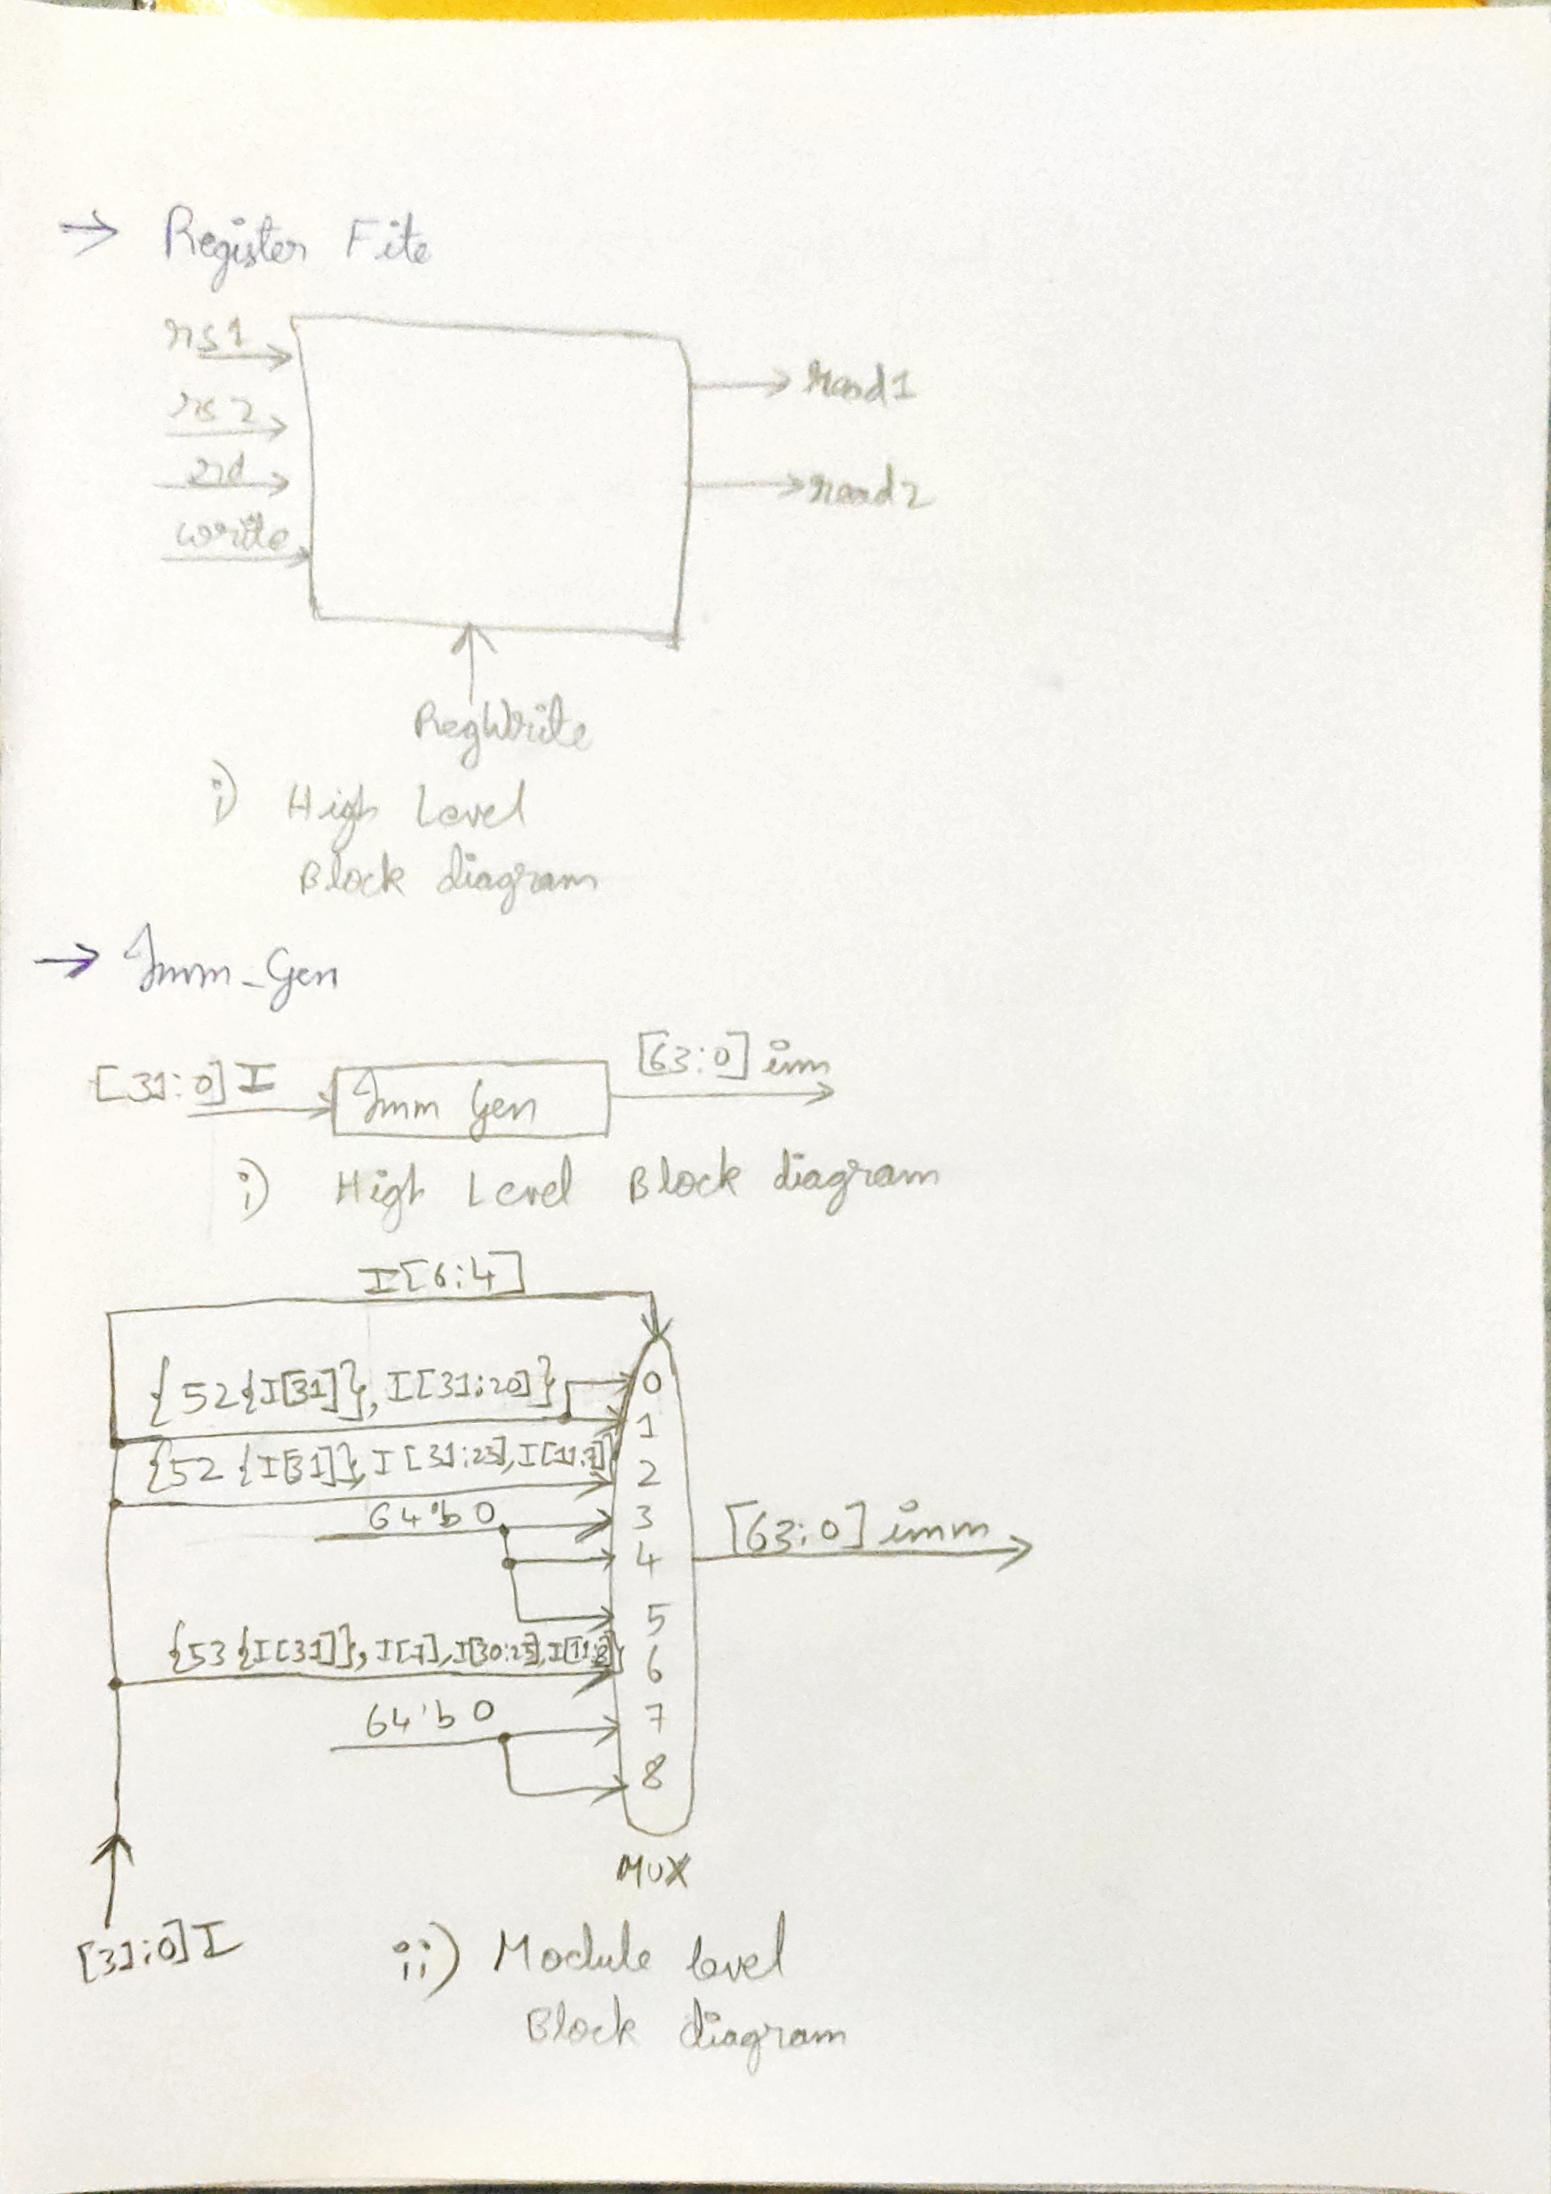 → Register File
rs1
rs2
rd
write
read1
read2
RegWrite
i) High Level
Block diagram
→ Imm_Gen
[31:0] I
Imm Gen
[63:0] imm
i) High Level Block diagram
I[6:4]
{52{I[31]}, I[31:20]}
{52{I[31]}, I[31:25], I[11:7]}
64'b0
{53{I[31]}, I[7], I[30:25], I[11:8]}
64'b0
0
1
2
3
4
5
6
7
8
[63:0] imm
MUX
[31:0] I
ii) Module level
Block diagram